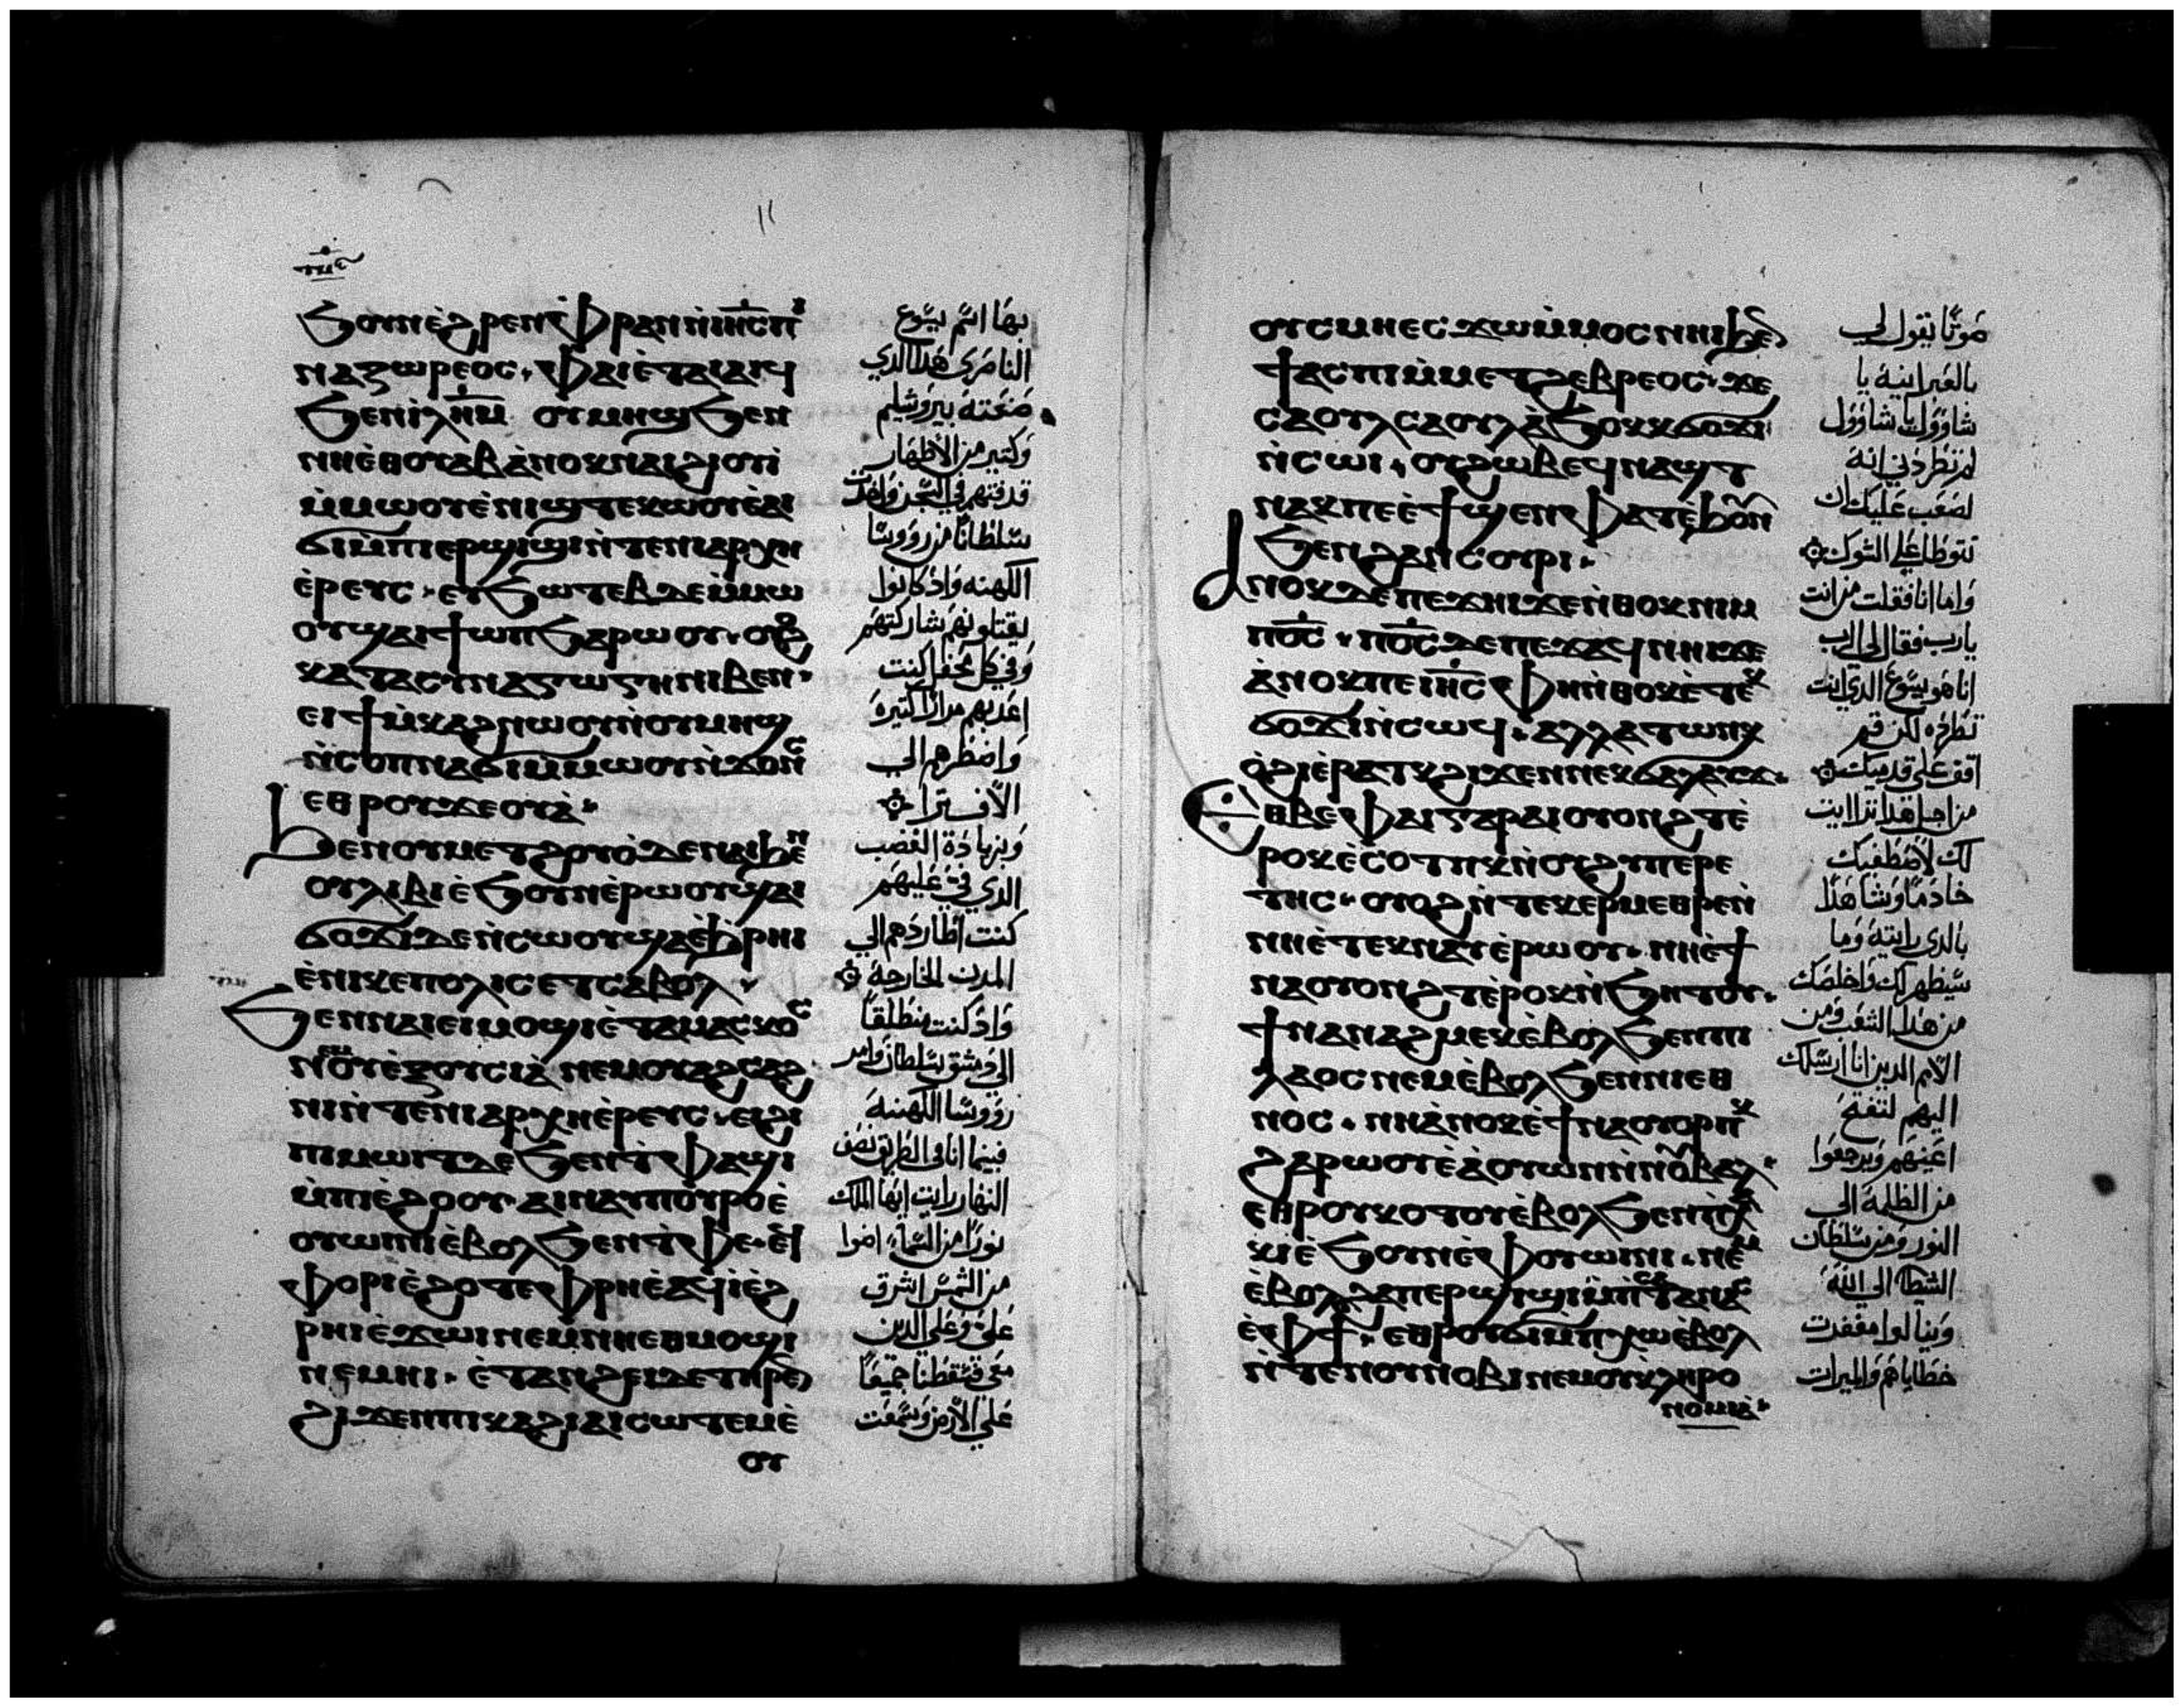 ϧⲟⲩⲛ ⲉ̀ϩⲣⲉⲛ ⲫⲣⲁⲛ ⲛ̀ⲓⲏⲥ ⲡⲓ
ⲛⲁⲍⲱⲣⲉⲟⲥ · ⲫⲁⲓ ⲉ̀ⲧⲁⲓⲁⲓϥ
ϧⲉⲛ ⲓⲗⲏⲙ ⲟⲩⲙⲏϣ ϧⲉⲛ
ⲛⲏⲉ̀ⲑⲟⲩⲁⲃ ⲁ̀ⲛⲟⲕ ⲛⲁⲓϩⲓⲟⲩⲓ̀
ⲙ̀ⲙⲱⲟⲩ ⲉ̀ⲛⲓϣⲧⲉⲕⲱⲟⲩ ⲉ̀ⲁⲓ
ϭⲓ ⲙ̀ⲡⲓⲉⲣϣⲓϣⲓ ⲛ̀ⲧⲉ ⲛⲓⲁⲣⲭⲏ
ⲉ̀ⲣⲉⲩⲥ · ⲉⲩϧⲱⲧⲉⲃ ⲇⲉ ⲙ̀ⲙⲱ
ⲟⲩ ϣⲁⲓϯⲱⲡ ϧⲁⲣⲱⲟⲩ · ⲟⲩⲟϩ
ⲕⲁⲧⲁ ⲥⲩⲛⲁⲅⲱⲅⲏ ⲛⲓⲃⲉⲛ ·
ⲉⲓϯⲙ̀ⲕⲁϩ ⲛⲱⲟⲩ ⲛ̀ⲟⲩⲙⲏϣ
ⲛ̀ⲥⲟⲡ ⲛⲁϭⲓ ⲙ̀ⲙⲱⲟⲩ ⲛ̀ϫⲟⲛⲥ
ⲉⲑⲣⲟⲩϫⲉⲟⲩⲁ̀ ·
ϧⲉⲛ ⲟⲩⲙⲉⲧϩⲟⲩⲟ̀ ⲇⲉ ⲛⲁⲓϧⲉⲛ
ⲟⲩⲗⲓⲃⲓ ⲉ̀ϧⲟⲩⲛ ⲉ̀ⲣⲱⲟⲩ ϣⲁⲓ
ϭⲟϫⲓ ⲇⲉ ⲛ̀ⲥⲱⲟⲩ ϣⲁⲉ̀ϧⲣⲏⲓ
ⲉ̀ⲛⲓⲕⲉⲡⲟⲗⲓⲥ ⲉⲧⲥⲁⲃⲟⲗ ·
ϧⲉⲛ ⲛⲁⲓ ⲉⲓⲙⲟϣⲓ ⲉ̀ⲧⲁⲙⲁⲥⲕⲟⲥ
ⲛⲉⲙ ⲟⲩⲉ̀ⲝⲟⲩⲥⲓⲁ̀ ⲛⲉⲙ ⲟⲩⲁϩⲥⲁϩ
ⲛⲓ ⲛ̀ⲧⲉ ⲛⲓⲁⲣⲭⲏⲉ̀ⲣⲉⲩⲥ · ⲉⲓϩⲓ
ⲡⲓⲙⲱⲓⲧ ⲇⲉ ϧⲉⲛ ⲧ̀ⲫⲁϣⲓ
ⲙ̀ⲡⲓⲉ̀ϩⲟⲟⲩ ⲁⲓⲛⲁⲩ ⲡⲟⲩⲣⲟ ⲉ̀
ⲟⲩⲱⲓⲛⲓ ⲉ̀ⲃⲟⲗ ϧⲉⲛ ⲧ̀ⲫⲉ · ⲉϥ
ⲫⲟⲣⲓ ⲉ̀ϩⲟⲧⲉ ⲫⲣⲏ ⲉ̀ⲁϥⲓ̀ ⲉ̀ϩ
ⲣⲏⲓ ⲉ̀ϫⲱⲓ ⲛⲉⲙ ⲛⲏⲉⲑⲙⲟϣⲓ
ⲛⲉⲙⲏⲓ · ⲉ̀ⲧⲁⲛϩⲉⲓ ⲇⲉ ⲧⲏⲣⲉⲛ
ϩⲓϫⲉⲛ ⲡⲓⲕⲁϩⲓ ⲁⲓⲥⲱⲧⲉⲙ ⲉ̀
ⲟⲩ
بها اسم يسوع
الناصري هذا الذي
صنعته بيروشليم
وكتير من الاطهار
قدفتهم في السجن واخدت
سلطانا من رووسا
الكهنه واذ كانوا
يقتلونهم شاركتهم
وفي كل محفل كنت
اعذبهم مرارا كتيرة
واضطرهم الي
الافترا
وبزيادة الغضب
الذي في عليهم
كنت اطاردهم الي
المدن الخارجة
واذ كنت منطلقا
الي دمشق بسلطان وامر
رووسا الكهنة
فبينما انا في الطريق نصف
النهار رايت ايها الملك
نورا من السماء اضوا
من الشمس اشرق
علي وعلي الذين
معي فسقطنا جميعا
علي الارض وسمعت
ⲟⲩⲥⲙⲏ ⲉⲥϫⲱ ⲙ̀ⲙⲟⲥ ⲛⲏⲓ ϧⲉⲛ
ϯⲁⲥⲡⲓ ⲙ̀ⲙⲉⲧϩⲉⲃⲣⲉⲟⲥ · ϫⲉ
ⲥⲁⲟⲩⲗ ⲥⲁⲟⲩⲗ ⲁ̀ϧⲟⲕ ⲕϭⲟϫⲓ
ⲛ̀ⲥⲱⲓ · ⲟⲩϩⲱⲃ ⲉϥⲛⲁϣⲧ
ⲛⲁⲕ ⲡⲉ ⲉ̀ϯϣⲉⲛ ⲫⲁⲧ ⲉ̀ϧⲟⲩⲛ
ϧⲉⲛ ϩⲁⲛⲥⲟⲩⲣⲓ ·
ⲁⲛⲟⲕ ⲇⲉ ⲡⲉϫⲏⲓ ϫⲉ ⲛ̀ⲑⲟⲕ ⲛⲓⲙ
ⲡⲟⲥ · ⲡⲟⲥ ⲇⲉ ⲡⲉϫⲁϥ ⲛⲏⲓ ϫⲉ
ⲁ̀ⲛⲟⲕ ⲡⲉ ⲓⲏⲥ ⲫⲏ ⲛ̀ⲑⲟⲕ ⲉ̀ⲧⲉⲕ
ϭⲟϫⲓ ⲛ̀ⲥⲱϥ · ⲁⲗⲗⲁ ⲧⲱⲛⲕ
ⲟ̀ϩⲓ ⲉ̀ⲣⲁⲧⲕ ϩⲓϫⲉⲛ ⲛⲉⲕϭⲁⲗⲁⲩϫ ·
ⲉⲑⲃⲉ ⲫⲁⲓ ⲅⲁⲣ ⲁⲓⲟⲩⲟⲛϩⲧ ⲉ̀
ⲣⲟⲕ ⲉ̀ⲥⲟⲧⲡⲕ ⲛ̀ⲟⲩϩⲩⲡⲉⲣⲉ
ⲧⲏⲥ · ⲟⲩⲟϩ ⲛ̀ⲧⲉⲕⲉⲣⲙⲉⲑⲣⲉ ⲛ̀
ⲛⲏⲉ̀ⲧⲉⲕⲛⲁⲩ ⲉ̀ⲣⲱⲟⲩ · ⲛⲏⲉ̀ϯ
ⲛⲁⲟⲩⲟⲛϩⲧ ⲉ̀ⲣⲟⲕ ⲛ̀ϧⲏⲧⲟⲩ ·
ϯⲛⲁⲛⲁϩⲙⲉⲕ ⲉ̀ⲃⲟⲗ ϧⲉⲛ ⲡⲓ
ⲗⲁⲟⲥ ⲛⲉⲙ ⲉ̀ⲃⲟⲗ ϧⲉⲛ ⲛⲓⲉⲑ
ⲛⲟⲥ · ⲛⲏ ⲁ̀ⲛⲟⲕ ⲉ̀ϯⲛⲁⲟⲩⲟⲣⲡⲕ
ϩⲁⲣⲱⲟⲩ ⲉ̀ⲁ̀ⲟⲩⲱⲛ ⲛ̀ⲛⲟⲩⲃⲁⲗ ·
ⲉⲑⲣⲟⲩⲕⲟⲧⲟⲩ ⲉ̀ⲃⲟⲗ ϧⲉⲛ ⲡⲓⲭⲁ
ⲕⲓ ⲉ̀ϧⲟⲩⲛ ⲉ̀ⲫⲟⲩⲱⲓⲛⲓ · ⲛⲉⲙ
ⲉ̀ⲃⲟⲗ ϩⲁ ⲡⲉⲣϣⲓϣⲓ ⲙ̀ⲡⲥⲁⲧⲁⲛⲁⲥ
ⲉ̀ⲫϯ · ⲉⲑⲣⲟⲩϭⲓ ⲙ̀ⲡⲭⲱ ⲉ̀ⲃⲟⲗ
ⲛ̀ⲧⲉ ⲛⲟⲩⲛⲟⲃⲓ ⲛⲉⲙ ⲟⲩⲕⲗⲏⲣⲟ
ⲛⲟⲙⲓⲁ̀ ·
صوتا يقول لي
بالعبرانية يا
شاوول يا شاوول
لم تطردني انه
لصعب عليك ان
تتوطا علي الشوك
واما انا فقلت من انت
يارب فقال لي الرب
انا هو يسوع الذي انت
تطرده لكن قم
اقف علي قدميك
من اجل هذا تراايت
لك لاصطفيك
خادما وشاهدا
بالذي رايته وما
سيظهر لك واخلصك
من هذا الشعب ومن
الامم الذين انا ارسلك
اليهم لتفتح
اعينهم ويرجعوا
من الظلمة الي
النور ومن سلطان
الشيطان الي الله
وينالوا مغفرت
خطاياهم والميرات